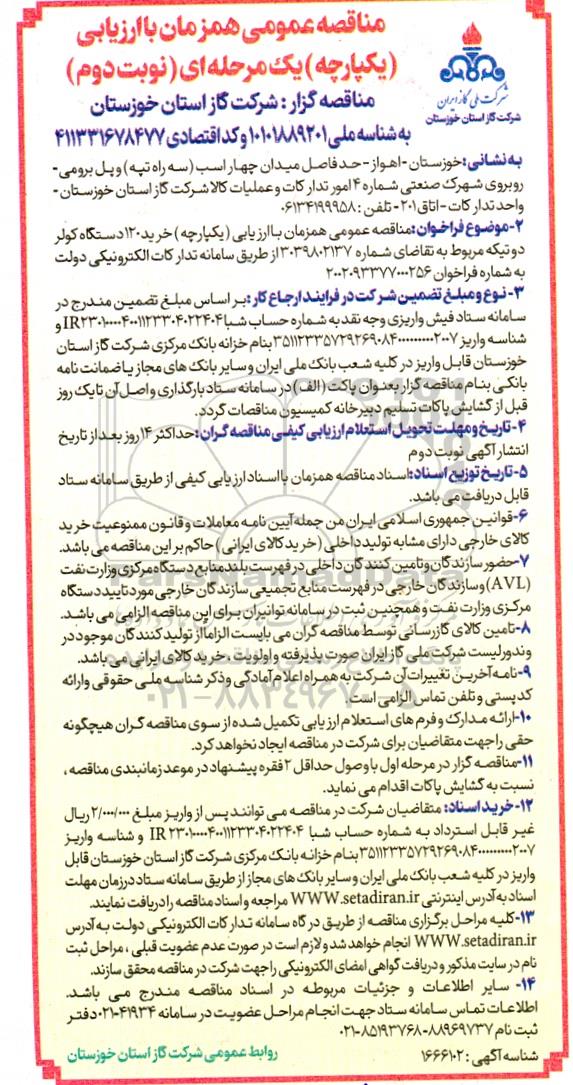 مناقصه عمومی همزمان با ارزیابی
(یکپارچه) یک مرحله ای (نوبت دوم)
مناقصه گزار: شرکت گاز استان خوزستان
به شناسه ملی ۱۰۱۰۱۸۸۹۲۰۱ و کد اقتصادی ۴۱۱۳۳۱۶۷۸۴۷۷
شرکت ملی گاز ایران
شرکت گاز استان خوزستان
به نشانی: خوزستان - اهواز - حد فاصل میدان چهار اسب (سه راه تپه) و پل برومی -
روبروی شهرک صنعتی شماره ۴ امور تدارکات و عملیات کالا شرکت گاز استان خوزستان -
واحد تدارکات - اتاق ۲۰۱ - تلفن: ۰۶۱۳۴۱۹۹۹۵۸
۲-موضوع فراخوان: مناقصه عمومی همزمان با ارزیابی (یکپارچه) خرید ۱۲۰ دستگاه کولر
دو تیکه مربوط به تقاضای شماره ۳۰۳۹۸۰۲۱۳۷ از طریق سامانه تدارکات الکترونیکی دولت
به شماره فراخوان ۲۰۰۲۰۹۳۳۷۷۰۰۰۲۵۶
۳- نوع و مبلغ تضمین شرکت در فرایند ارجاع کار: بر اساس مبلغ تضمین مندرج در
سامانه ستاد فیش واریزی وجه نقد به شماره حساب شبا IR۲۳۰۱۰۰۰۰۴۰۰۱۱۲۳۳۰۴۰۲۲۴۰۴ و
شناسه واریز ۳۵۱۱۲۳۳۵۷۲۹۲۶۹۰۸۴۰۰۰۰۰۰۰۰۰۰۲۰۰۷ بنام خزانه بانک مرکزی شرکت گاز استان
خوزستان قابل واریز در کلیه شعب بانک ملی ایران و سایر بانک های مجاز یا ضمانت نامه
بانکی بنام مناقصه گزار بعنوان پاکت (الف) در سامانه ستاد بارگذاری و اصل آن تا یک روز
قبل از گشایش پاکات تسلیم دبیرخانه کمیسیون مناقصات گردد.
۴- تاریخ و مهلت تحویل استعلام ارزیابی کیفی مناقصه گران: حداکثر ۱۴ روز بعد از تاریخ
انتشار آگهی نوبت دوم
۵- تاریخ توزیع اسناد: اسناد مناقصه همزمان با اسناد ارزیابی کیفی از طریق سامانه ستاد
قابل دریافت می باشد.
۶-قوانین جمهوری اسلامی ایران من جمله آیین نامه معاملات و قانون ممنوعیت خرید
کالای خارجی دارای مشابه تولید داخلی (خرید کالای ایرانی) حاکم بر این مناقصه می باشد.
۷-حضور سازندگان و تامین کنندگان داخلی در فهرست بلند منابع دستگاه مرکزی وزارت نفت
(AVL) و سازندگان خارجی در فهرست منابع تجمیعی سازندگان خارجی مورد تایید دستگاه
مرکزی وزارت نفت و همچنین ثبت در سامانه توانیران برای این مناقصه الزامی می باشد.
۸-تامین کالای گازرسانی توسط مناقصه گران می بایست الزاما از تولید کنندگان موجود در
وندور لیست شرکت ملی گاز ایران صورت پذیرفته و اولویت، خرید کالای ایرانی می باشد.
۹-نامه آخرین تغییرات آن شرکت به همراه اعلام آمادگی و ذکر شناسه ملی حقوقی و ارائه
کد پستی و تلفن تماس الزامی است.
۱۰-ارائه مدارک و فرم های استعلام ارزیابی تکمیل شده از سوی مناقصه گران هیچگونه
حقی را جهت متقاضیان برای شرکت در مناقصه ایجاد نخواهد کرد.
۱۱-مناقصه گزار در مرحله اول با وصول حداقل ۲ فقره پیشنهاد در موعد زمانبندی مناقصه،
نسبت به گشایش پاکات اقدام می نماید.
۱۲-خرید اسناد: متقاضیان شرکت در مناقصه می توانند پس از واریز مبلغ ۲/۰۰۰/۰۰۰ ریال
غیر قابل استرداد به شماره حساب شبا IR ۲۳۰۱۰۰۰۰۴۰۰۱۱۲۳۳۰۴۰۲۲۴۰۴ و شناسه واریز
۳۵۱۱۲۳۳۵۷۲۹۲۶۹۰۸۴۰۰۰۰۰۰۰۰۰۰۲۰۰۷ بنام خزانه بانک مرکزی شرکت گاز استان خوزستان قابل
واریز در کلیه شعب بانک ملی ایران و سایر بانک های مجاز از طریق سامانه ستاد در زمان مهلت
اسناد به آدرس اینترنتی WWW.setadiran.ir مراجعه و اسناد مناقصه را دریافت نمایند.
۱۳-کلیه مراحل برگزاری مناقصه از طریق درگاه سامانه تدارکات الکترونیکی دولت به آدرس
WWW.setadiran.ir انجام خواهد شد و لازم است در صورت عدم عضویت قبلی، مراحل ثبت
نام در سایت مذکور و دریافت گواهی امضای الکترونیکی را جهت شرکت در مناقصه محقق سازند.
۱۴- سایر اطلاعات و جزئیات مربوطه در اسناد مناقصه مندرج می باشد.
اطلاعات تماس سامانه ستاد جهت انجام مراحل عضویت در سامانه ۴۱۹۳۴-۰۲۱ دفتر
ثبت نام ۸۸۹۶۹۷۳۷-۸۵۱۹۳۷۶۸-۰۲۱
شناسه آگهی: ۱۶۶۶۱۰۲
روابط عمومی شرکت گاز استان خوزستان
۰۲۱-۸۸۳۴۹۶۷۰-۵